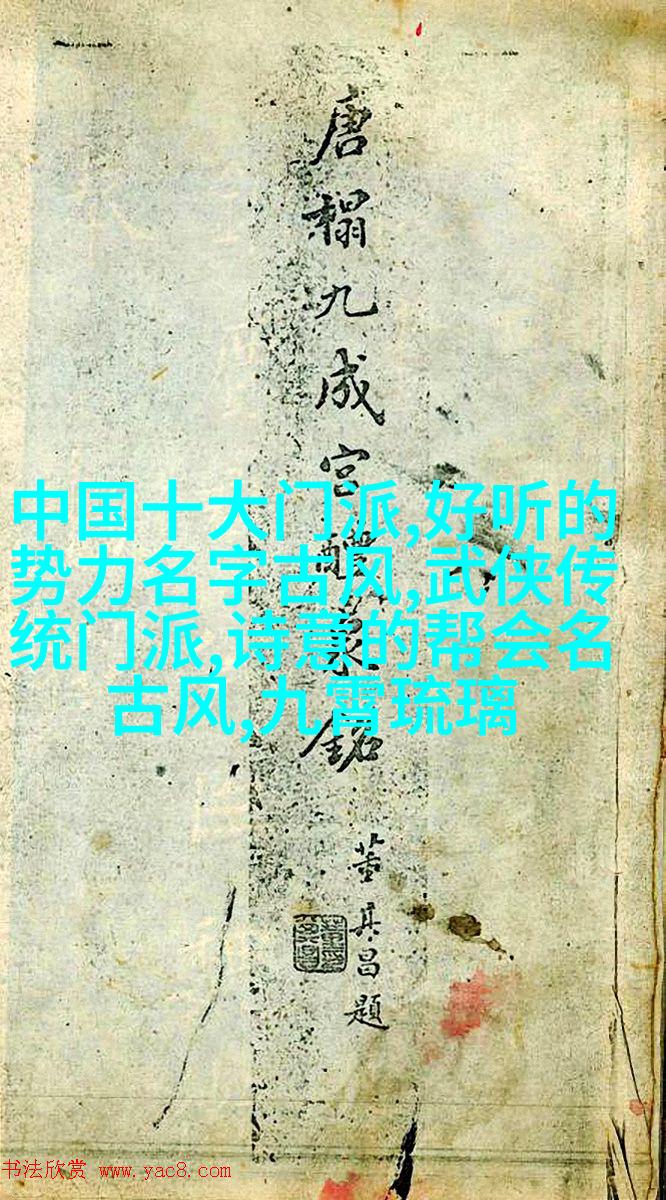 唐榻九成宮醴泉銘
董其昌題
中国十大门派,好听的
势力名字古风,武侠传
统门派,诗意的帮会名
古风,九霄琉璃
书法欣赏 www.yac8.com